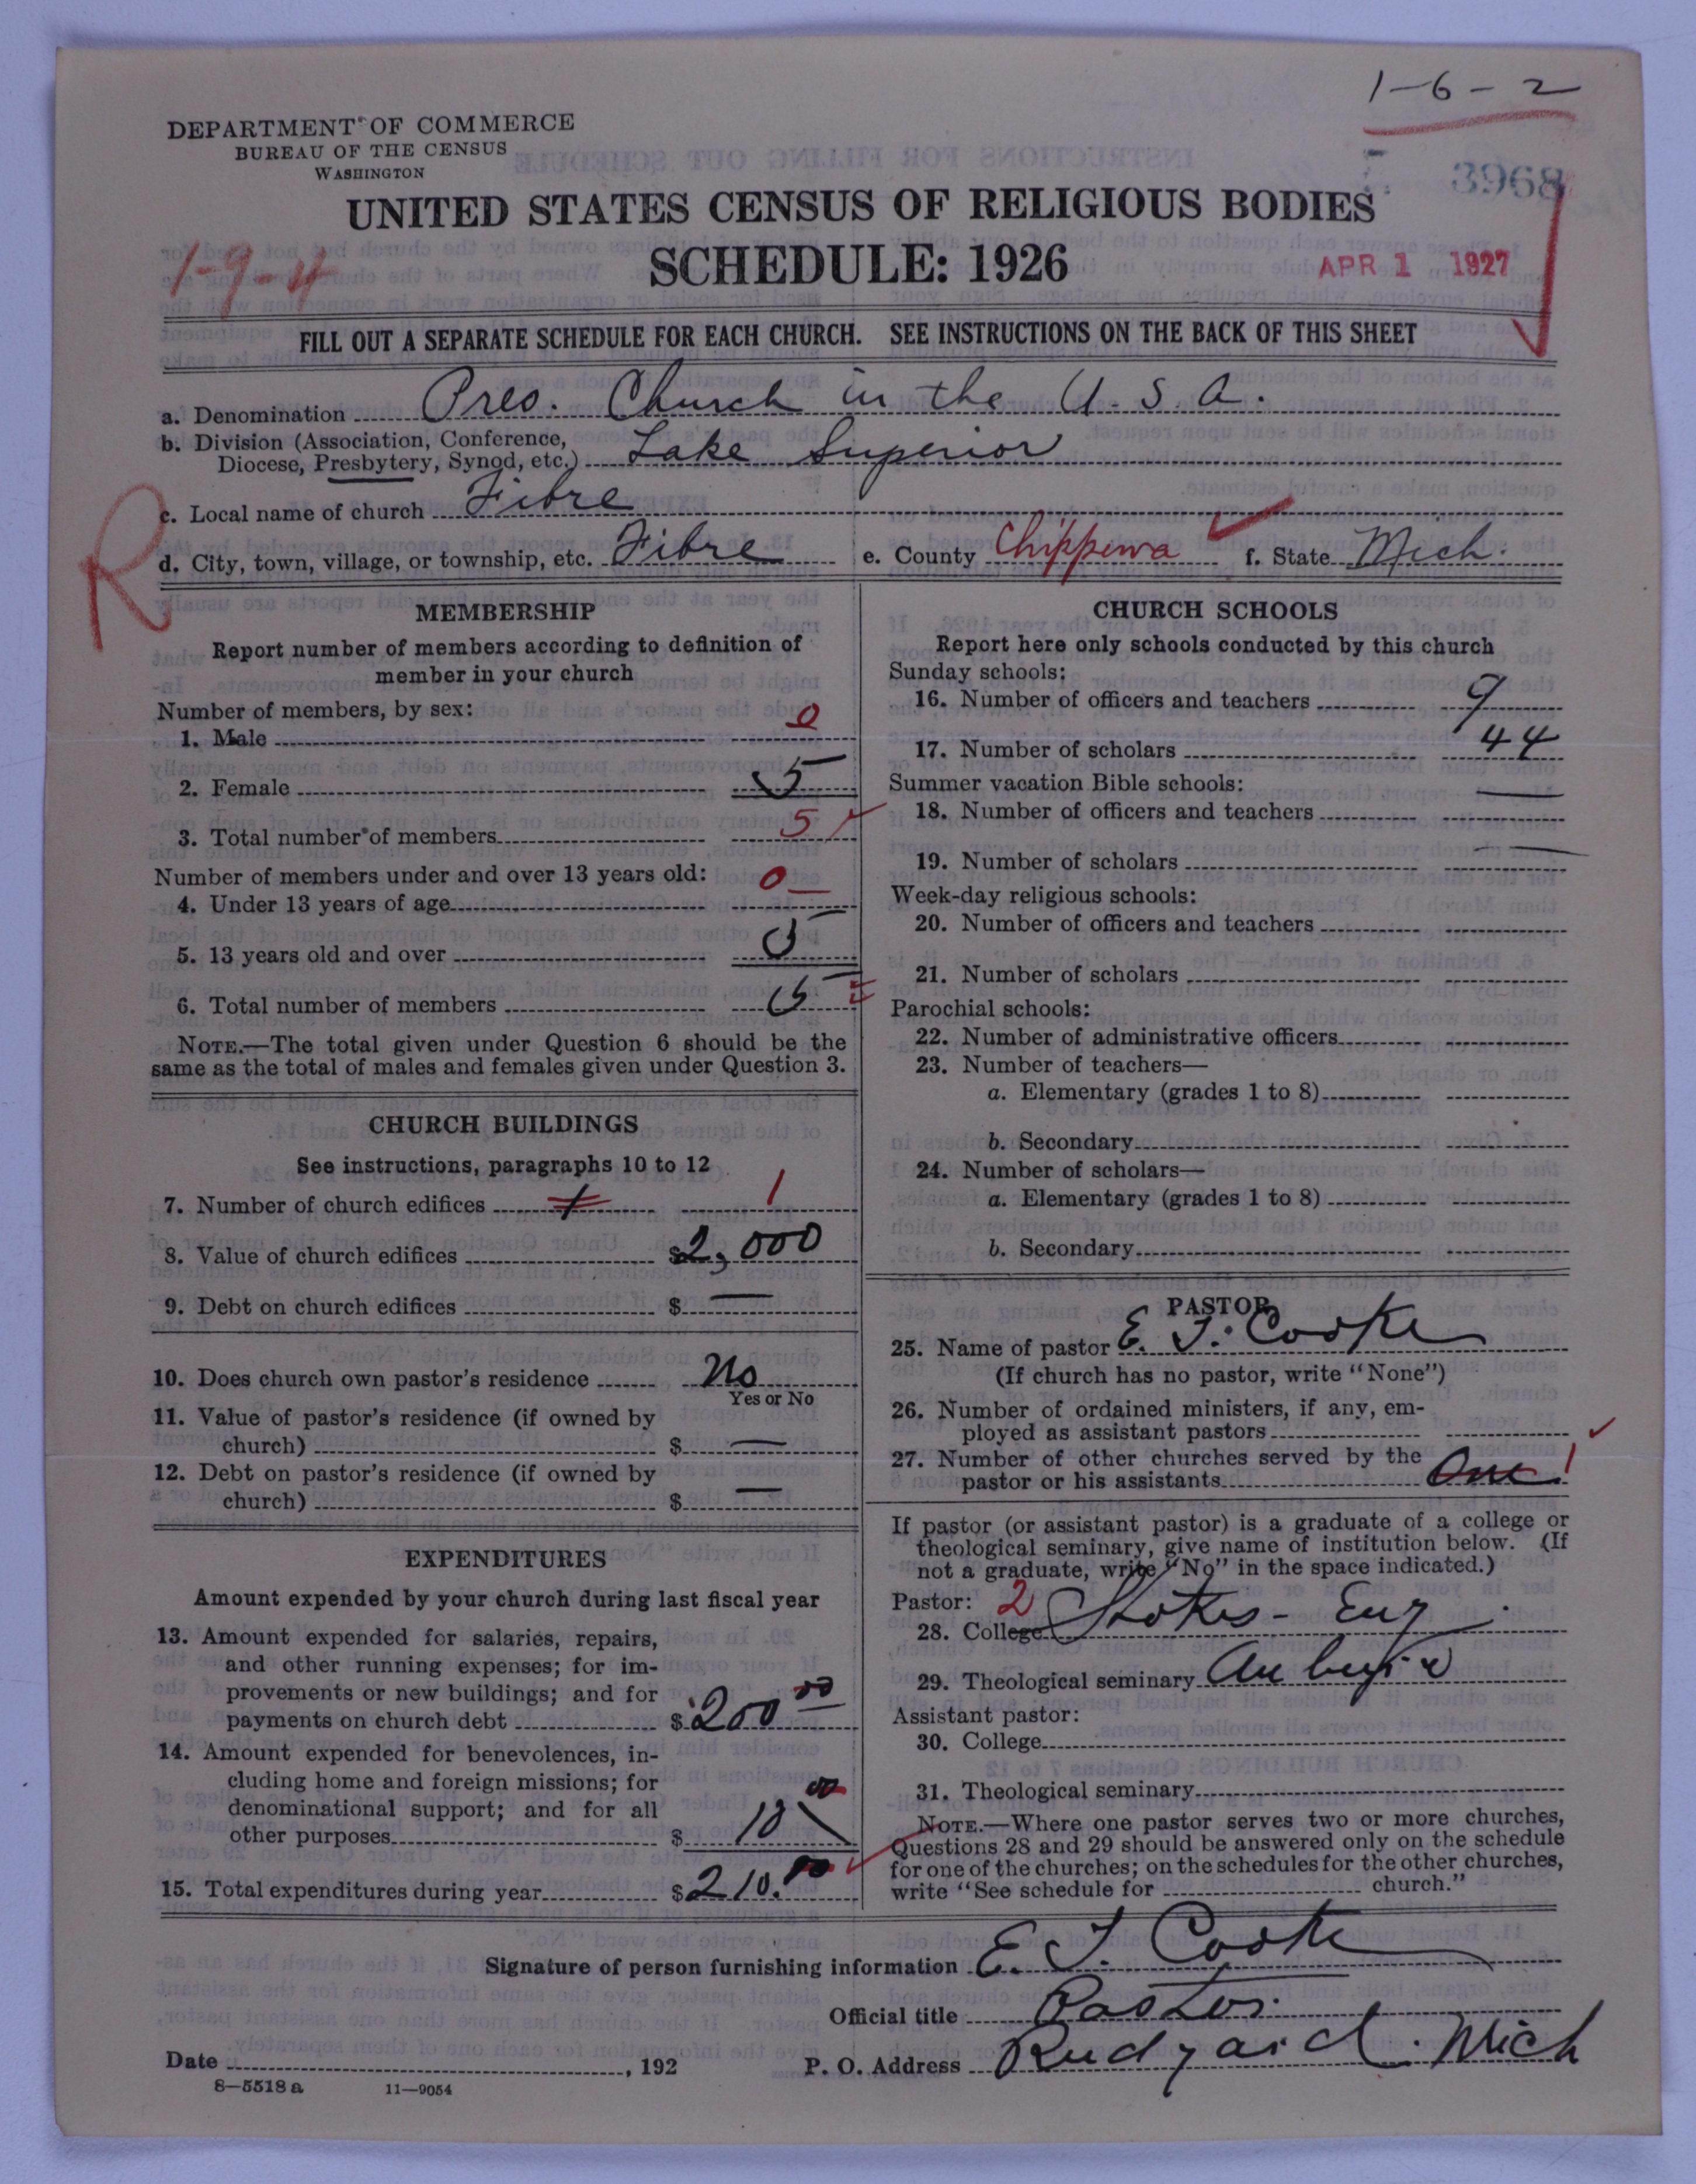 1-6-2
DEPARTMENT OF COMMERCE
BUREAU OF THE CENSUS
WASHINGTON
3968
UNITED STATES CENSUS OF RELIGIOUS BODIES
SCHEDULE: 1926
1-9-4
APR 1 1927
FILL OUT A SEPARATE SCHEDULE FOR EACH CHURCH. SEE INSTRUCTIONS ON THE BACK OF THIS SHEET
a. Denomination Pres. Church in the U.S.A.
b. Division (Association, Conference,
Diocese, Presbytery, Synod, etc.) Lake Superior
R
c. Local name of church Fibre
d. City, town, village, or township, etc. Fibre e. County Chippewa f. State Mich.
MEMBERSHIP
Report number of members according to definition of
member in your church
Number of members, by sex:
1. Male 0
2. Female 5
3. Total number of members 5
Number of members under and over 13 years old:
4. Under 13 years of age 0
5. 13 years old and over 5
6. Total number of members 5
NOTE.—The total given under Question 6 should be the
same as the total of males and females given under Question 3.
CHURCH BUILDINGS
See instructions, paragraphs 10 to 12
7. Number of church edifices 1 1
8. Value of church edifices $2,000
9. Debt on church edifices $ —
10. Does church own pastor's residence No
Yes or No
11. Value of pastor's residence (if owned by
church) $ —
12. Debt on pastor's residence (if owned by
church) $ —
EXPENDITURES
Amount expended by your church during last fiscal year
13. Amount expended for salaries, repairs,
and other running expenses; for im-
provements or new buildings; and for
payments on church debt $200 00
14. Amount expended for benevolences, in-
cluding home and foreign missions; for
denominational support; and for all
other purposes $ 10 00
15. Total expenditures during year $210.00
CHURCH SCHOOLS
Report here only schools conducted by this church
Sunday schools:
16. Number of officers and teachers 9
17. Number of scholars 44
Summer vacation Bible schools:
18. Number of officers and teachers —
19. Number of scholars —
Week-day religious schools:
20. Number of officers and teachers
21. Number of scholars
Parochial schools:
22. Number of administrative officers
23. Number of teachers—
a. Elementary (grades 1 to 8)
b. Secondary
24. Number of scholars—
a. Elementary (grades 1 to 8)
b. Secondary
PASTOR
25. Name of pastor E. J. Cooke
(If church has no pastor, write "None")
26. Number of ordained ministers, if any, em-
ployed as assistant pastors
27. Number of other churches served by the
pastor or his assistants One 1
If pastor (or assistant pastor) is a graduate of a college or
theological seminary, give name of institution below. (If
not a graduate, write "No" in the space indicated.)
Pastor: 2
28. College Stokes - Eng.
29. Theological seminary Auburn
Assistant pastor:
30. College
31. Theological seminary
NOTE.—Where one pastor serves two or more churches,
Questions 28 and 29 should be answered only on the schedule
for one of the churches; on the schedules for the other churches,
write "See schedule for church."
Signature of person furnishing information E. J. Cooke
Official title Pastor.
Date , 192 P. O. Address Rudyard. Mich
8—5518 a 11—9054